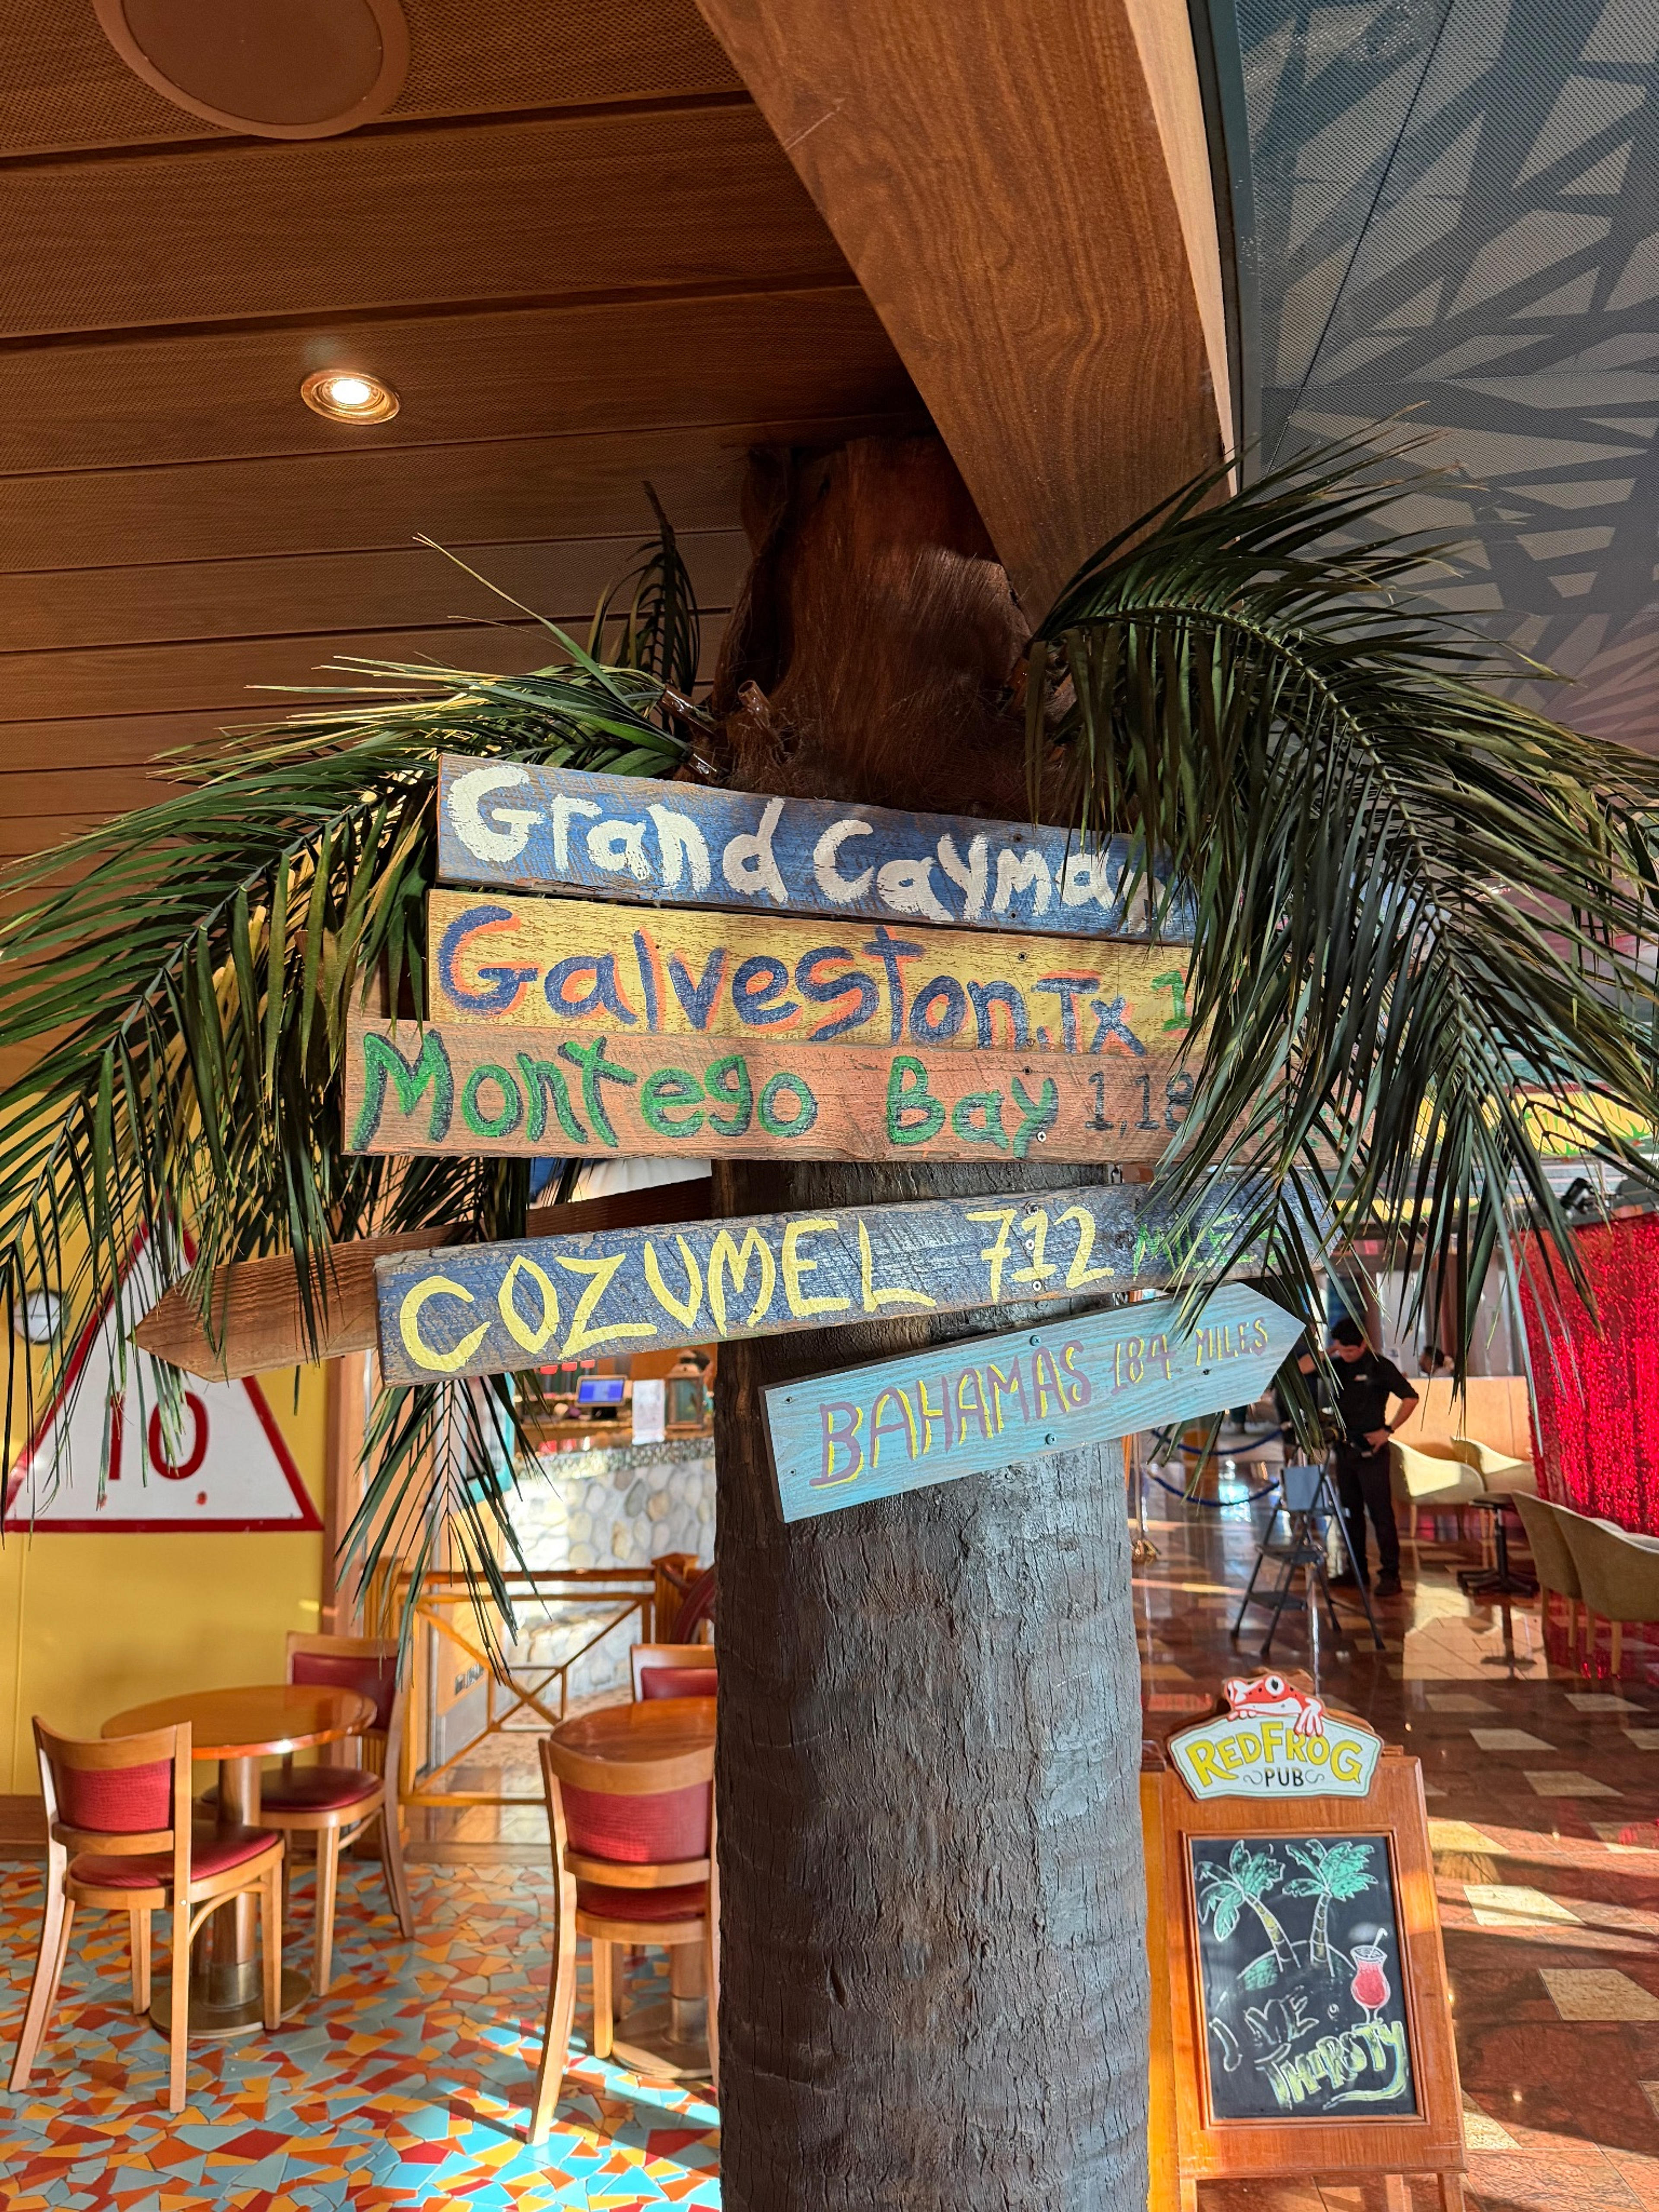 Grand Cayman
Galveston, Tx 1
Montego Bay 1,18
COZUMEL 712 MILES
BAHAMAS 184 MILES
10
REDFROG
PUB
I ME
THIRSTY